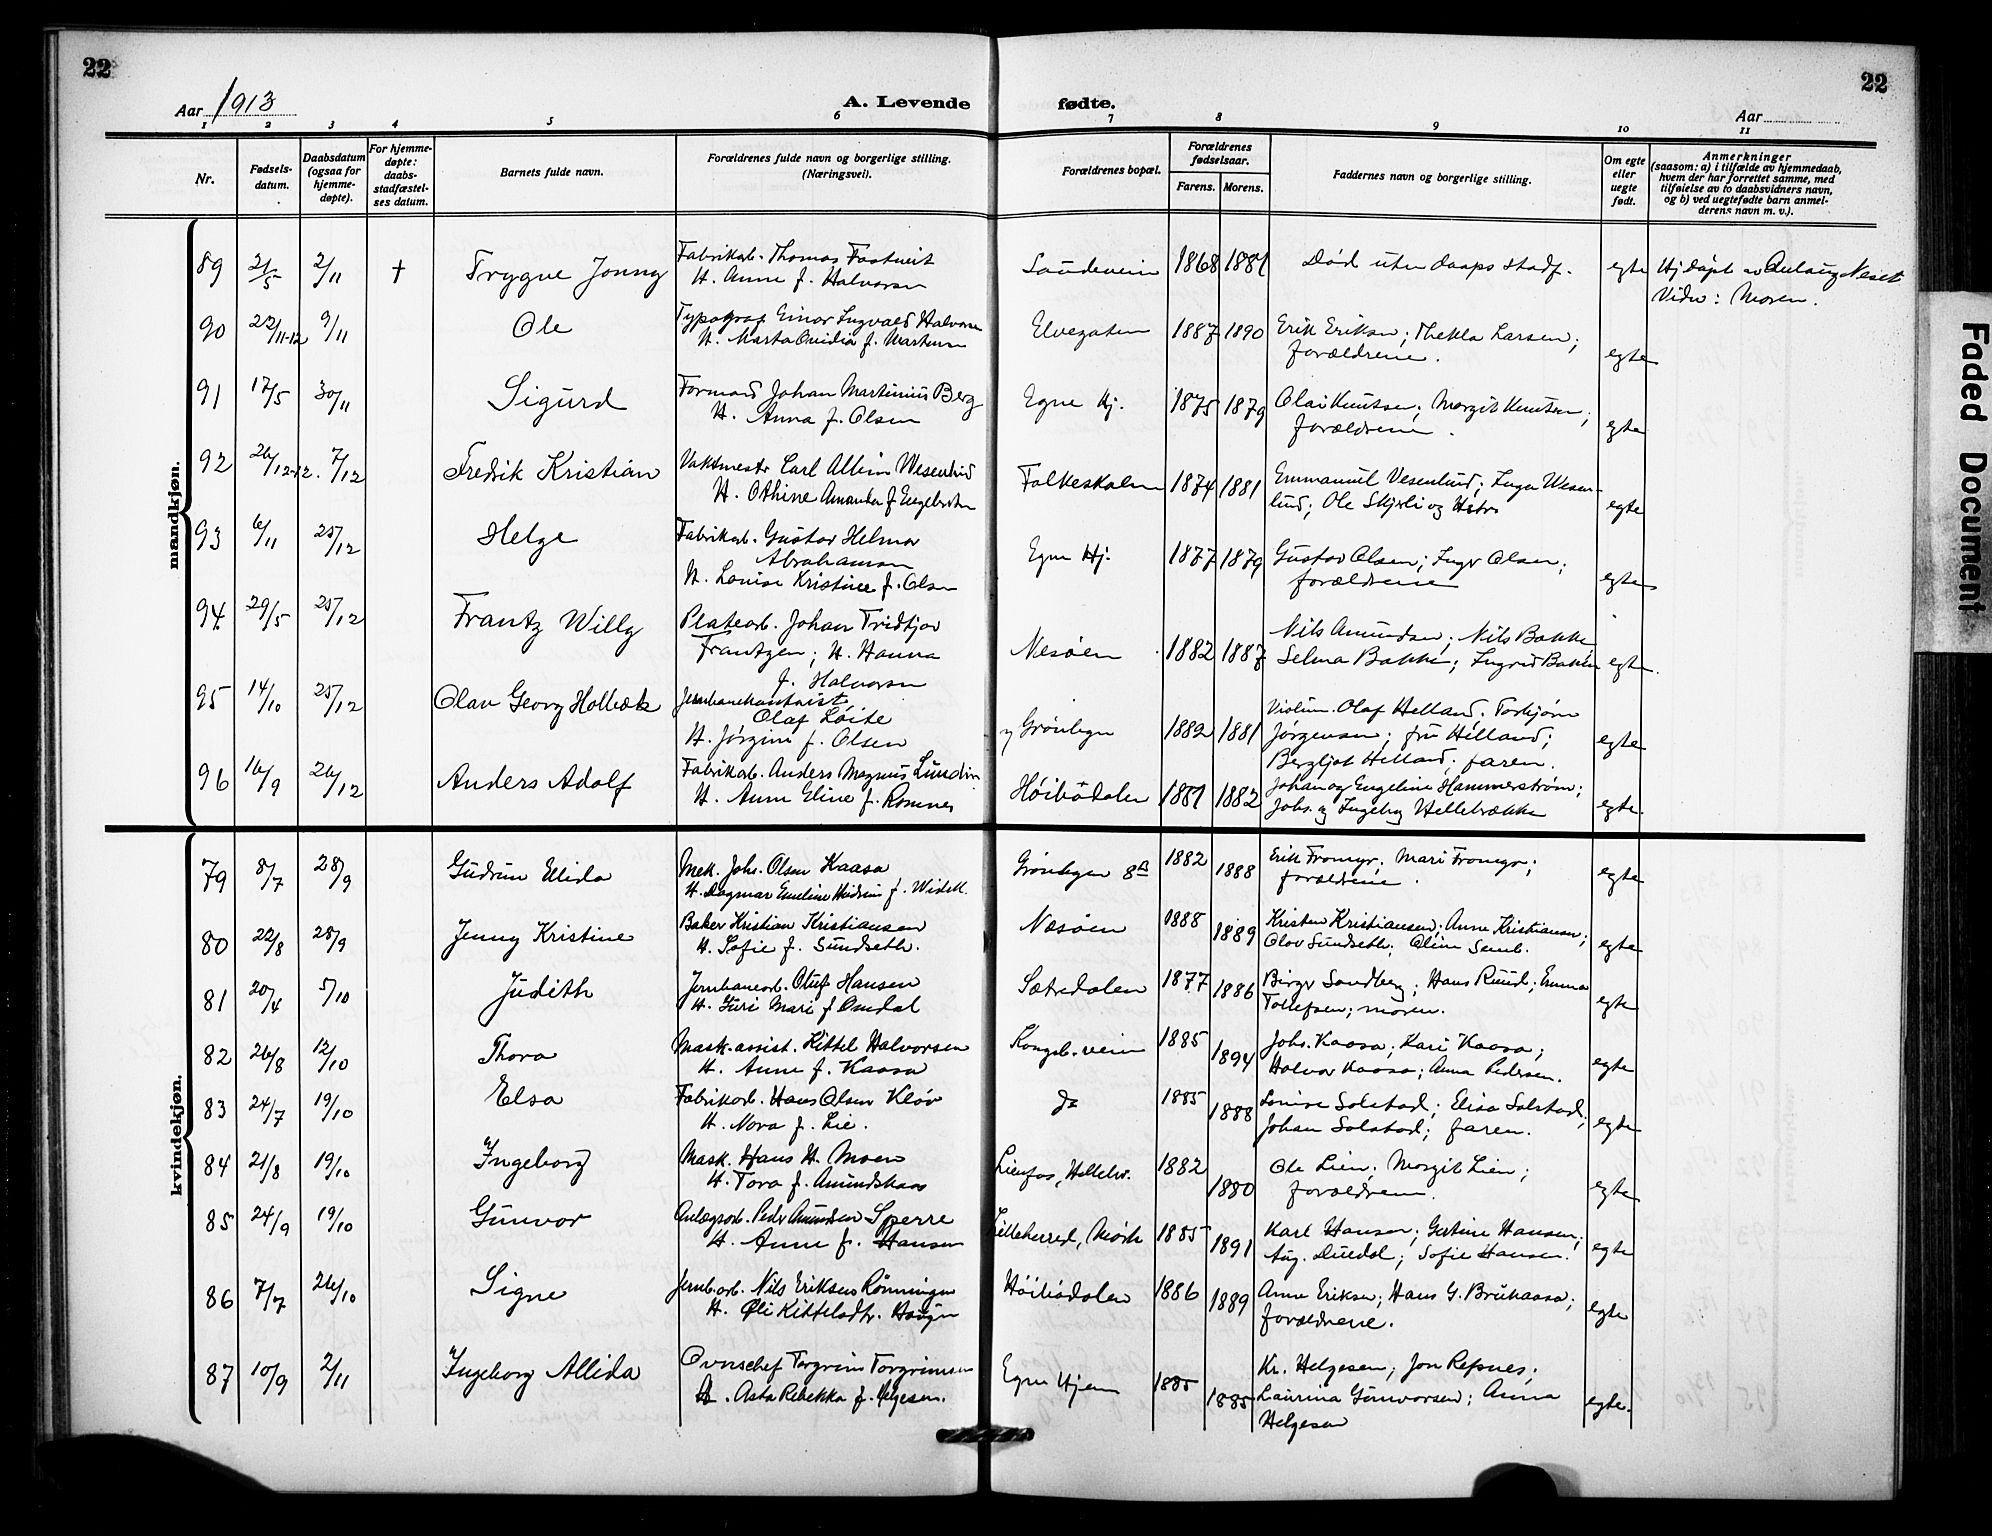 22
22
Aar 1913
A. Levende fødte.
Aar
1 2 3 4 5 6 7 8 9 10 11
Nr.
Fødsels-
datum.
Daabsdatum
(ogsaa for
hjemme-
døpte).
For hjemme-
døpte:
daabs-
stadfæstel-
ses datum.
Barnets fulde navn.
Forældrenes fulde navn og borgerlige stilling.
(Næringsvei).
Forældrenes bopæl.
Forældrenes
fødselsaar.
Farens. Morens.
Faddernes navn og borgerlige stilling.
Om egte
eller
uegte
født.
Anmerkninger
(saasom: a) i tilfælde av hjemmedaab,
hvem der har forrettet samme, med
tilføielse av to daabsvidners navn,
og b) ved uegtefødte barn anmel-
derens navn m. v.).
mandkjøn.
89 21/5 2/11 † Trygve Jonny Fabrikarb. Thomas Fostveit Saudeveien 1868 1881 Død uten daaps stadf. egte Hj.døpt av Aslaug Neset
H. Anne f. Halvorsen Vidn: Moren.
90 22/11-12 9/11 Ole Typograf Einar Ingvald Halvorsen Elvegaten 1887 1890 Erik Eriksen; Thekla Larsen;
H. Marta Ovidia f. Martinsen forældrene. egte
91 17/5 30/11 Sigurd Formand Johan Martinius Berg Egne Hj. 1875 1879 Olai Knutsen; Margit Knutsen;
H. Anna f. Olsen forældrene. egte
92 26/12-12. 7/12 Fredrik Kristian Vaktmestr Carl Albin Wesenlund Folkeskolen 1874 1881 Emmanuel Vesenlund; Inga Wesen-
H. Othine Amanda f. Engebretsen lund; Ole Skjerli og Hstr. egte
93 6/11 25/12 Helge Fabrikarb. Gustav Helmer
Abrahamsen Egne Hj. 1877 1879 Gustav Olsen; Inger Olsen;
H. Louise Kristine f. Olsen forældrene egte
94 29/5 25/12 Frantz Willy Platearb. Johan Fridtjov Nils Amundsen; Nils Bakke
Frantzen; H. Hanna Nesøen 1882 1887 Selma Bakke; Ingrid Bakken egte.
f. Halvorsen
95 14/10 25/12 Olav Georg Holbæk Jernbanekontorist Violin. Olaf Helland; Torbjørn
Olaf Løite Grønbyen 1882 1881 Jørgensen; fru Helland; egte
H. Jørgine f. Olsen Bergljot Helland; faren.
96 16/9 26/12 Anders Adolf Fabrikarb. Anders Magnus Lundin Høibødalen 1881 1882 Johan og Engeline Hammerstrøm;
H. Anne Eline f. Romnes Johs. og Ingeborg Hellebrække egte.
kvindekjøn.
79 8/7 28/9 Gudrun Elida Mek. Johs. Olsen Kaasa Grønbyen 8A 1882 1888 Erik Fromyr; Mari Fromyr;
H. Dagmar Emeline f. forældrene. egte
80 22/8 28/9 Jenny Kristine Baker Kristian Kristiansen Næsøen 1888 1889 Kristen Kristiansen; Anne Kristiansen;
H. Sofie f. Sundseth. Olav Sundseth; Oline Semb. egte
81 20/4 5/10 Judith Jernbanearb. Oluf Hansen Sætredalen 1877 1886 Birger Sandberg; Hans Ruud; Emma
H. Guri Mari f. Omdal Tollefsen; moren. egte
82 26/8 12/10 Thora Mask.assist. Kittel Halvorsen Kongsb.veien 1885 1894 Johs. Kaasa; Kari Kaasa;
H. Anne f. Kaasa Halvor Kaasa; Anna Pedersen. egte
83 24/7 19/10 Elsa Fabrikarb. Hans Olsen Kløv do 1885 1888 Louise Solstad; Elisa Solstad;
H. Nora f. Lie. Johan Solstad; faren. egte
84 21/8 19/10 Ingeborg Mask. Hans H. Moen Lienfos, Hellebr. 1882 1880 Ole Lien; Margit Lien;
H. Tora f. Amundskaas forældrene. egte
85 24/9 19/10 Gunvor Anlægsarb. Peder Amundsen Sperre Lilleherred, 1885 1891 Karl Hansen; Gertine Hansen;
H. Anne f. Hansen Aug. ; Sofie Hansen. egte
86 7/7 26/10 Signe Jernb.arb. Nils Eriksen Rønningen Høibødalen 1886 1889 Anne Eriksen; Hans G. Brukaasa;
H. Øli Kittelsdtr. Haugen forældrene. egte
87 10/9 2/11 Ingeborg Allida Ovnschef Torgrim Torgrimsen Egne Hjem 1885 1885 Kr. Helgesen; Jon Refsnes;
H. Asta Rebekka f. Helgesen. Laurina Gunvorsen; Anna egte.
Helgesen
Faded Document